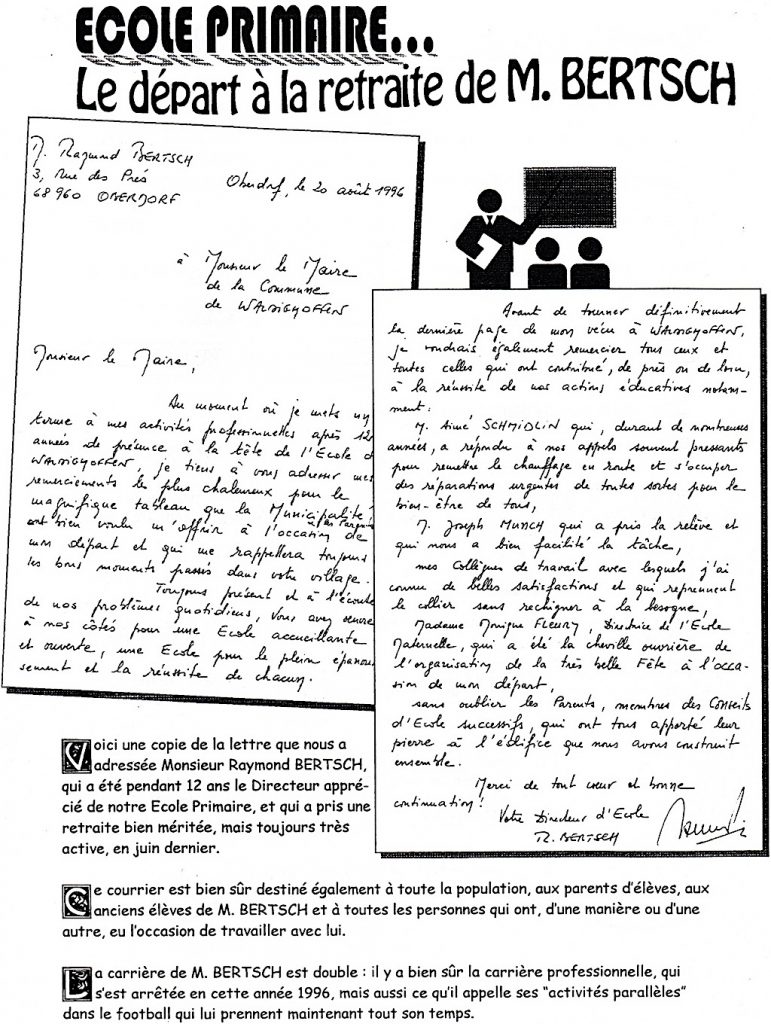 ECOLE PRIMAIRE...
Le départ à la retraite de M. BERTSCH
M. Raymond BERTSCH
3, rue des Prés
68960 OBERDORF
Oberdorf, le 20 août 1996
à Monsieur le Maire
de la Commune
de WALDIGHOFFEN
Monsieur le Maire,
Au moment où je mets un
terme à mes activités professionnelles après 12
années de présence à la tête de l'Ecole d
WALDIGHOFFEN, je tiens à vous adresser mes
remerciements les plus chaleureux pour le
magnifique tableau que la Municipalité
et les Parents
ont bien voulu m'offrir à l'occasion de
mon départ et qui me rappellera toujours
les bons moments passés dans votre village.
Toujours présent et à l'écoute
de nos problèmes quotidiens, vous avez oeuvré
à nos côtés pour une Ecole accueillante
et ouverte, une Ecole pour le plein épanouis
sement et la réussite de chacun.
Avant de tourner définitivement
la dernière page de mon vécu à WALDIGHOFFEN,
je voudrais également remercier tous ceux et
toutes celles qui ont contribué, de près ou de loin,
à la réussite de nos actions éducatives notam-
ment :
M. Aimé SCHMIDLIN qui, durant de nombreuses
années, a répondu à nos appels souvent pressants
pour remettre le chauffage en route et s'occuper
des réparations urgentes de toutes sortes pour le
bien-être de tous,
M. Joseph MUNCH qui a pris la relève et
qui nous a bien facilité la tâche,
mes Collègues de travail avec lesquels j'ai
connu de belles satisfactions et qui reprennent
le collier sans rechigner à la besogne,
Madame Monique FLEURY, Directrice de l'Ecole
Maternelle, qui a été la cheville ouvrière de
l'organisation de la très belle Fête à l'occa-
sion de mon départ,
sans oublier les Parents, membres des Conseils
d'Ecole successifs, qui ont tous apporté leur
pierre à l'édifice que nous avons construit
ensemble.
Merci de tout cœur et bonne
continuation!
Votre Directeur d'Ecole
R. BERTSCH
Voici une copie de la lettre que nous a
adressée Monsieur Raymond BERTSCH,
qui a été pendant 12 ans le Directeur appré-
cié de notre Ecole Primaire, et qui a pris une
retraite bien méritée, mais toujours très
active, en juin dernier.
Ce courrier est bien sûr destiné également à toute la population, aux parents d'élèves, aux
anciens élèves de M. BERTSCH et à toutes les personnes qui ont, d'une manière ou d'une
autre, eu l'occasion de travailler avec lui.
La carrière de M. BERTSCH est double : il y a bien sûr la carrière professionnelle, qui
s'est arrêtée en cette année 1996, mais aussi ce qu'il appelle ses "activités parallèles"
dans le football qui lui prennent maintenant tout son temps.